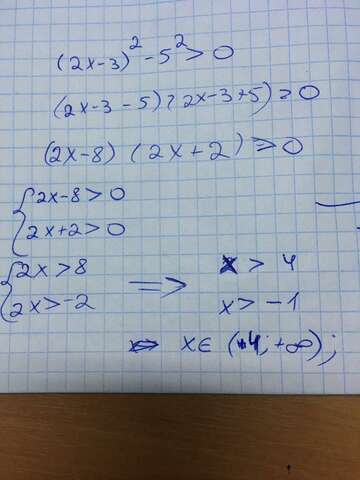 (2x-3)² - 5² > 0
(2x-3-5)(2x-3+5) > 0
(2x-8) (2x+2) > 0
{ 2x-8 > 0
2x+2 > 0
{ 2x > 8 => x > 4
2x > -2 x > -1
x ∈ (4; +∞);